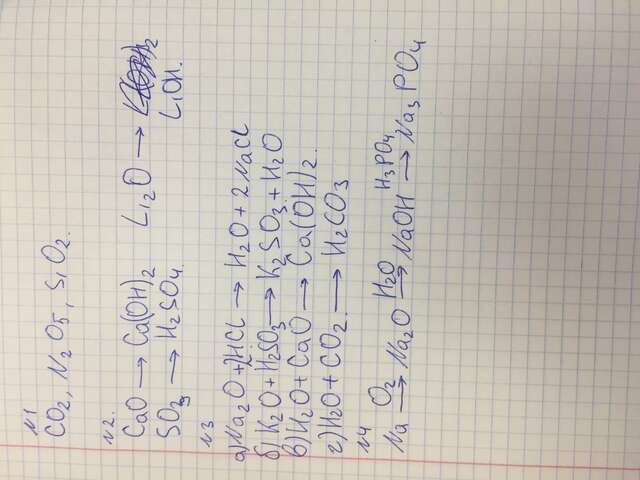 N1
CO2, N2O5, SiO2.
N2.
CaO → Ca(OH)2 Li2O →
SO3 → H2SO4. LiOH.
N3
а) Na2O + 2HCl → H2O + 2NaCl
б) K2O + H2SO3 → K2SO3 + H2O
в) H2O + CaO → Ca(OH)2.
г) H2O + CO2 → H2CO3
N4
Na O2→ Na2O H2O→ NaOH H3PO4→ Na3PO4